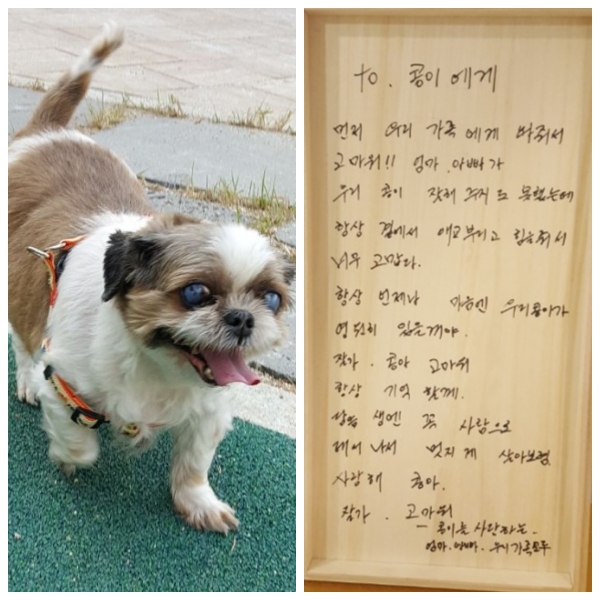 to. 콩이에게
먼저 우리 가족에게 와줘서
고마워!! 엄마.아빠가
우리 콩이 잘해 주지도 못했는데
항상 곁에서 애교부리고 힘을줘서
너무 고맙다.
항상 언제나 마음엔 우리콩이가
영원히 있을게야.
잘가. 콩아 고마워
항상 기억 할께.
다음 생엔 꼭 사람으로
태어나서 멋지게 살아보렴
사랑해 콩아.
잘가. 고마워
- 콩이를 사랑하는-
엄마.아빠. 우리가족모두